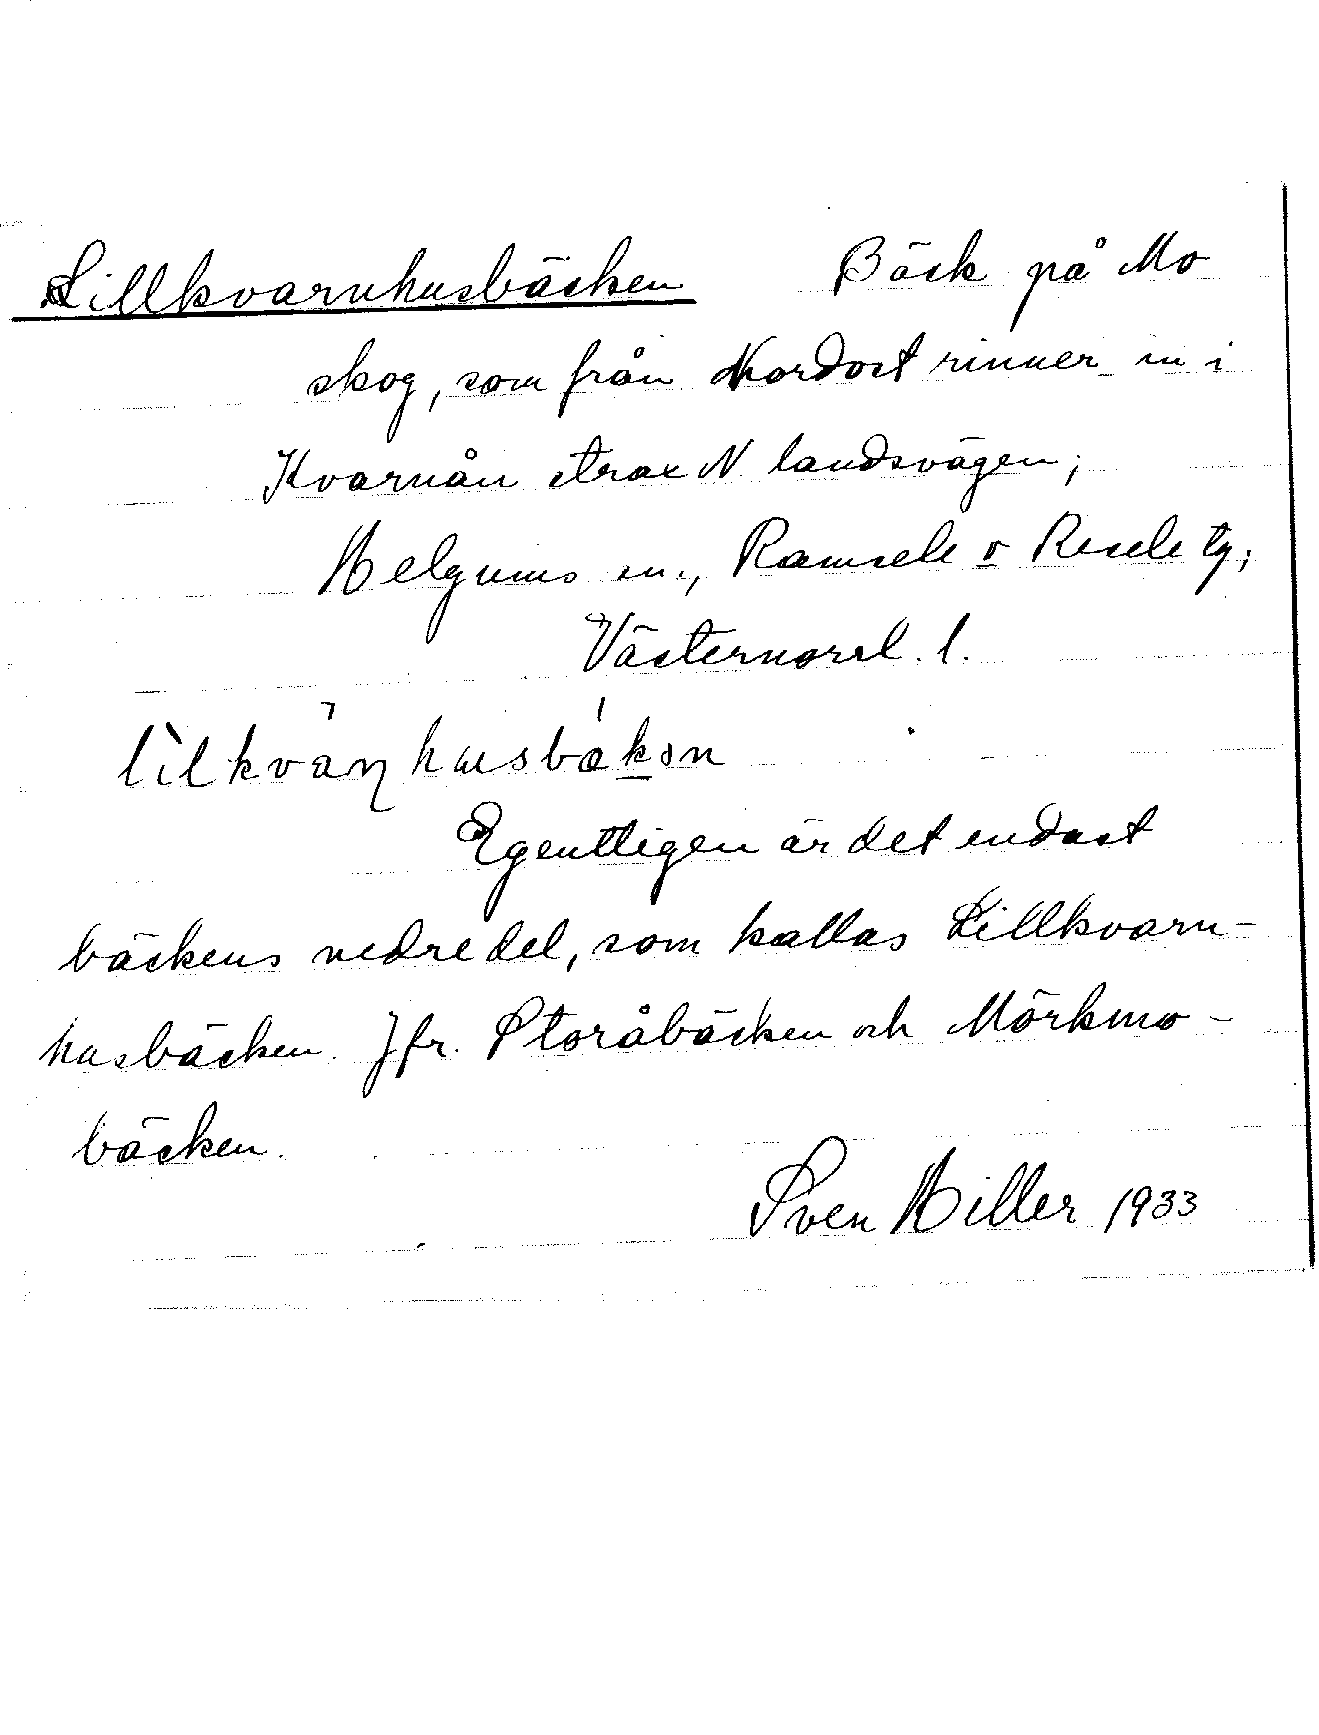 Lillkvarnhusbäcken Bäck på Mo
skog, som från Nordost rinner in i
Kvarnån strax N landsvägen;
Helgums sn., Ramsele o Resele tg;
Västernorrl. l.
lilkvaɳhusbækən
Egentligen är det endast
bäckens nedre del, som kallas Lillkvarn-
husbäcken. Jfr. Storåbäcken och Mörkmo-
bäcken.
Sven Hiller 1933